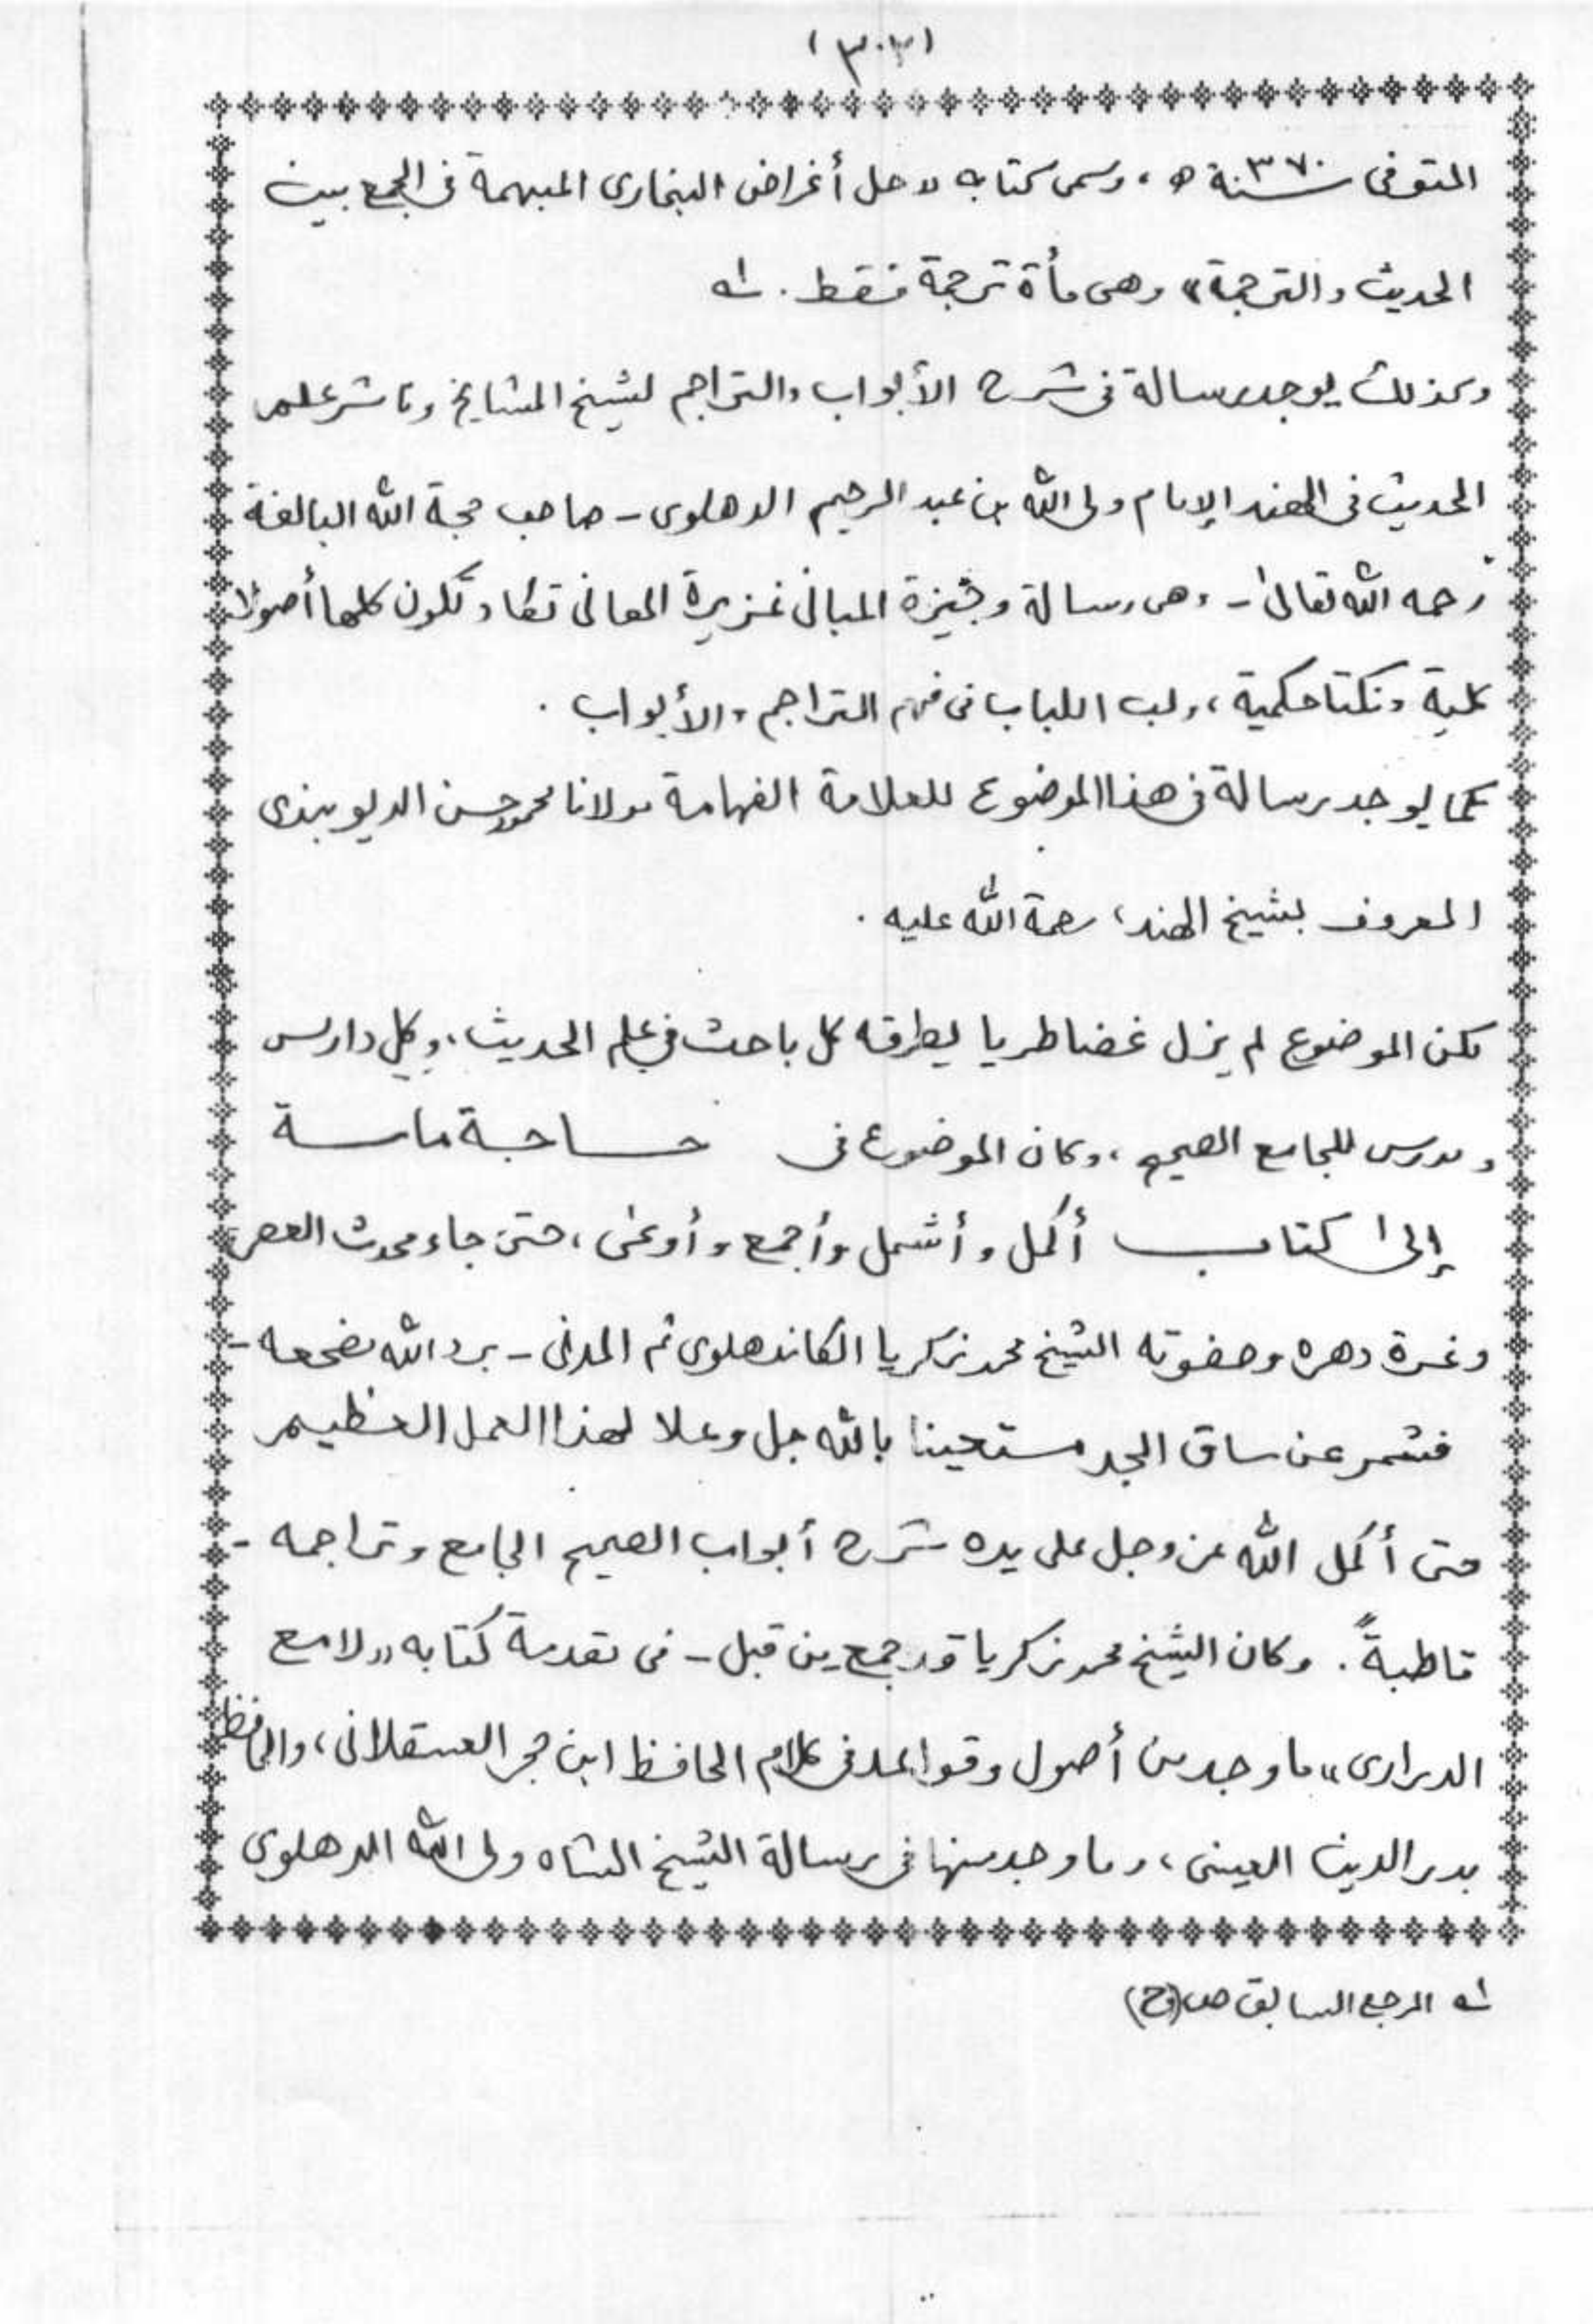 (٣٠٢)
المتوفى سنة ٣٧٠ ه ، وسمى كتابه «حل أغراض البخارى المبهمة فى الجمع بين
الحديث والترجمة» وهى مأة ترجمة فقط . له
وكذلك يوجد رسالة فى شرح الأبواب والتراجم لشيخ المشايخ وناشر علم
الحديث فى الهند الإمام ولى الله بن عبد الرحيم الدهلوى - صاحب حجة الله البالغة
رحمه الله تعالى - وهى رسالة وجيزة المبانى غزيرة المعانى تكاد تكون كلها أصولا
كلية ونكتا حكمية ، ولب اللباب فى فهم التراجم والأبواب .
كما يوجد رسالة فى هذا الموضوع للعلامة الفهامة مولانا محمود حسن الديوبندى
المعروف بشيخ الهند ، رحمة الله عليه .
لكن الموضوع لم يزل غضا طريا يطرقه كل باحث فى علم الحديث ، وكل دارس
ومدرس للجامع الصحيح ، وكان الموضوع فى حاجة ماسة
إلى كتاب أكمل وأشمل وأجمع وأوعى ، حتى جاء محدث العصر
وغرة دهره وصفوته الشيخ محمد زكريا الكاندهلوى ثم المدنى - برد الله مضجعه -
فشمر عن ساق الجد مستعينا بالله جل وعلا لهذا العمل العظيم
حتى أكمل الله عز وجل على يده شرح أبواب الصحيح الجامع وتراجمه -
قاطبةً . وكان الشيخ محمد زكريا قد جمع من قبل - فى تقدمة كتابه «لامع
الدرارى» ما وجد من أصول وقواعد فى كلام الحافظ ابن حجر العسقلانى ، والحافظ
بدر الدين العينى ، وما وجد منها فى رسالة الشيخ الشاه ولى الله الدهلوى
له المرجع السابق ص (وح)